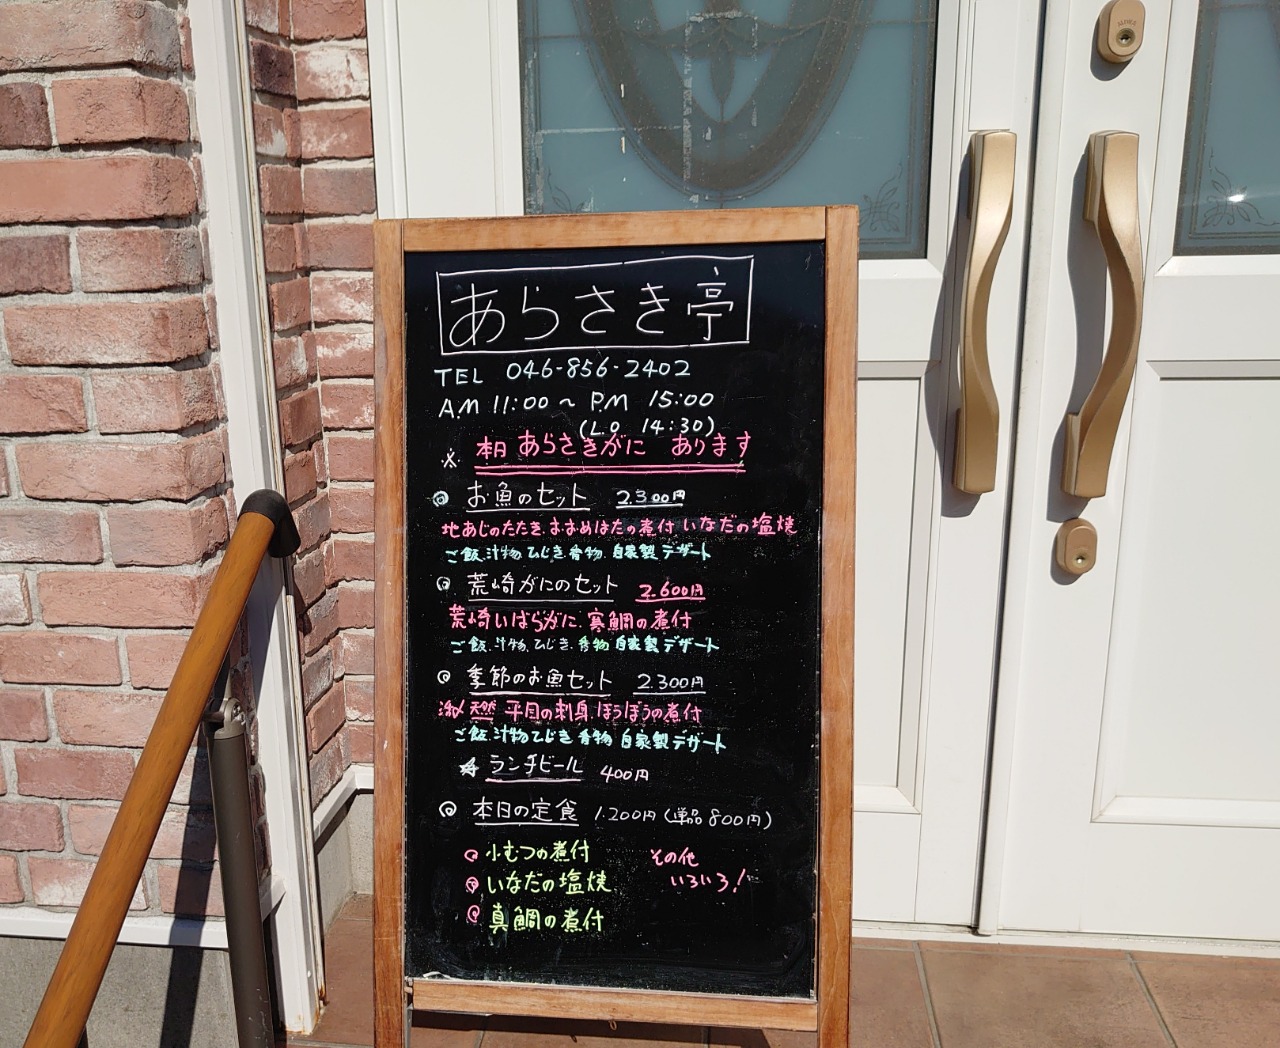 あらさき亭
TEL 046-856-2402
A.M 11:00 〜 P.M 15:00
(L.O 14:30)
※ 本日 あらさきがに あります
◎ お魚のセット 2.300円
地あじのたたき.おおめはたの煮付 いなだの塩焼
ご飯.汁物.ひじき.香物.自家製デザート
◎ 荒崎がにのセット 2.600円
荒崎いばらがに.寒鯛の煮付
ご飯.汁物.ひじき.香物 自家製デザート
◎ 季節のお魚セット 2.300円
天然 平目の刺身.ほうぼうの煮付
ご飯.汁物ひじき香物 自家製デザート
☆ ランチビール 400円
◎ 本日の定食 1.200円(単品800円)
小むつの煮付
いなだの塩焼
真鯛の煮付
その他
いろいろ!